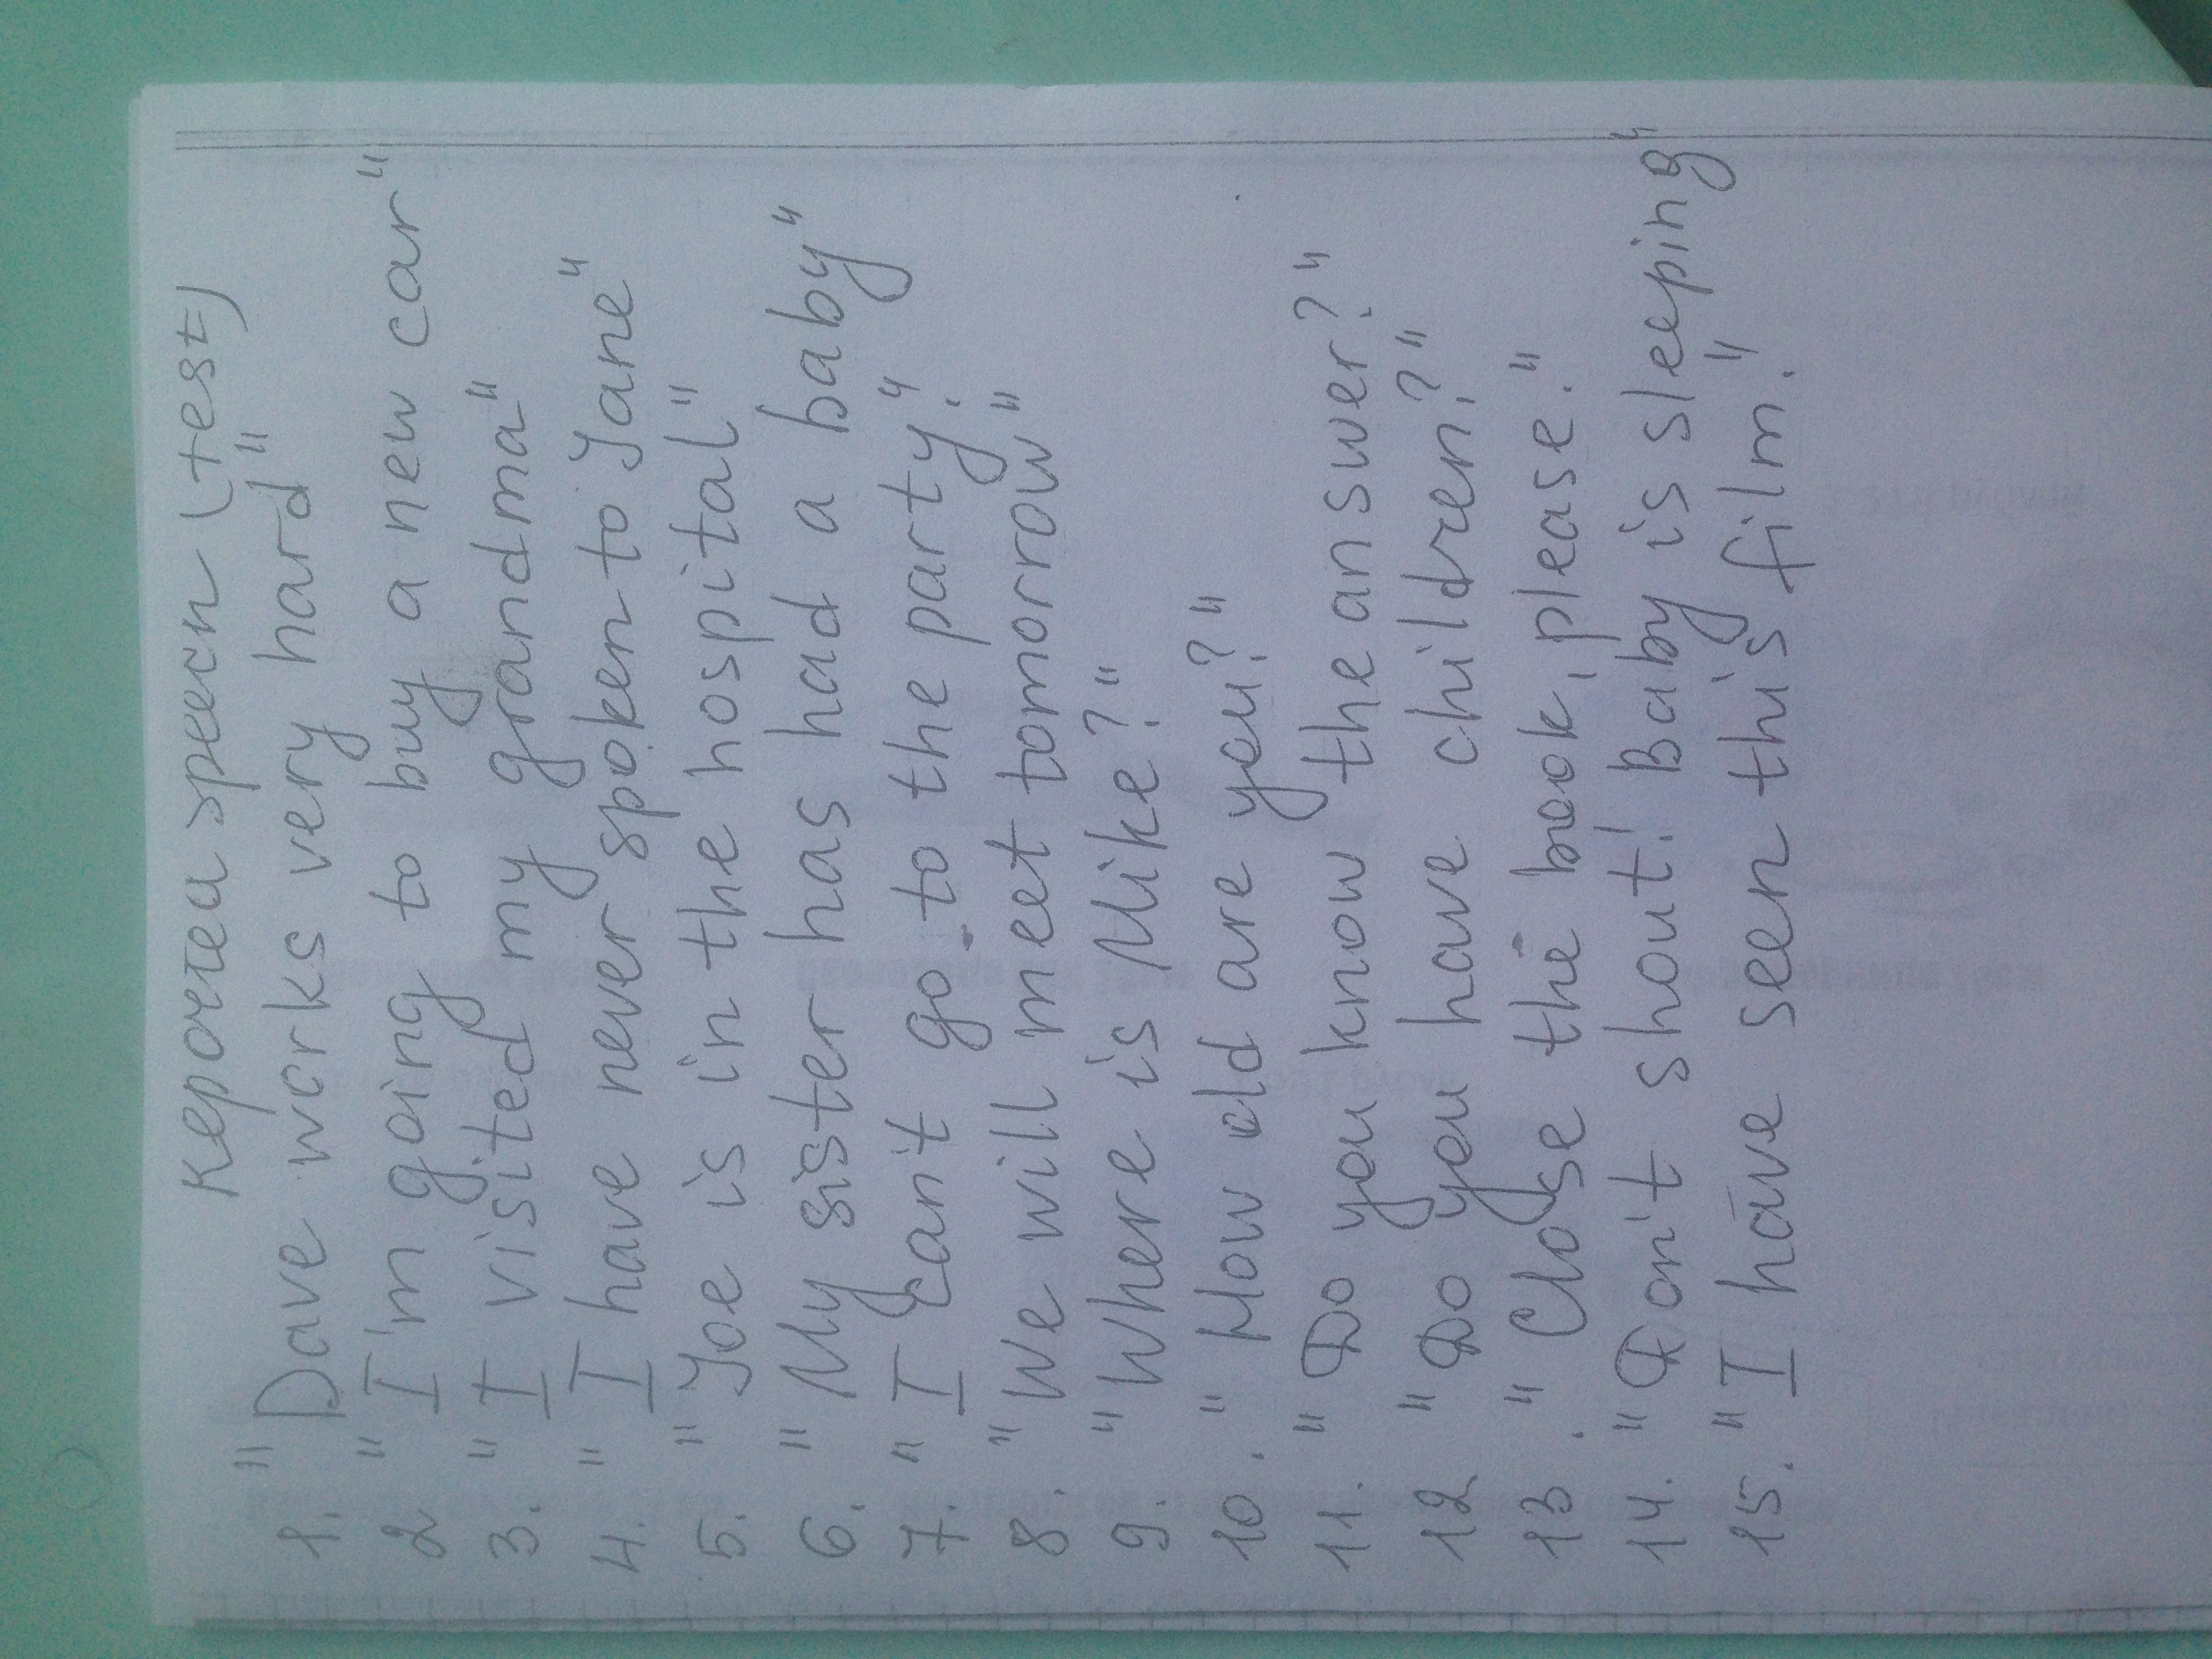 Reported speech (test)
1. "Dave works very hard"
2 "I'm going to buy a new car"
3. "I visited my grandma"
4. "I have never spoken to Jane"
5. "Joe is in the hospital"
6. "My sister has had a baby"
7. "I can't go to the party."
8. "We will meet tomorrow"
9. "Where is Mike?"
10. "How old are you?"
11. "Do you know the answer?"
12 "Do you have children?"
13. "Close the book, please."
14. "Don't shout! Baby is sleeping"
15. "I have seen this film."